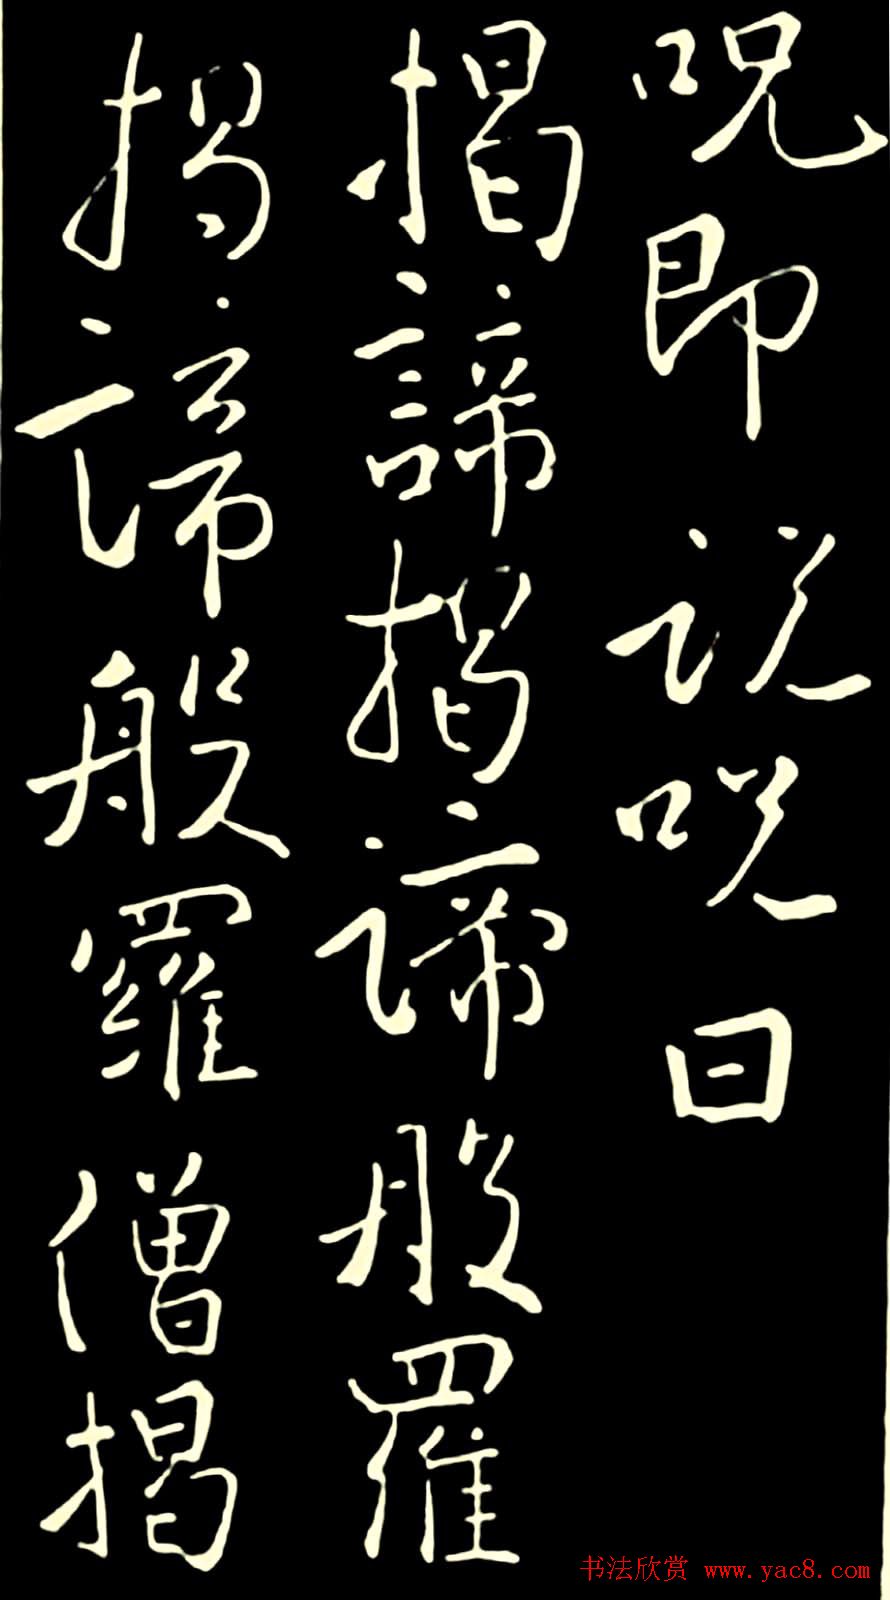 咒即說咒曰
揭諦揭諦般羅
揭諦般羅僧揭
书法欣赏 www.yac8.com